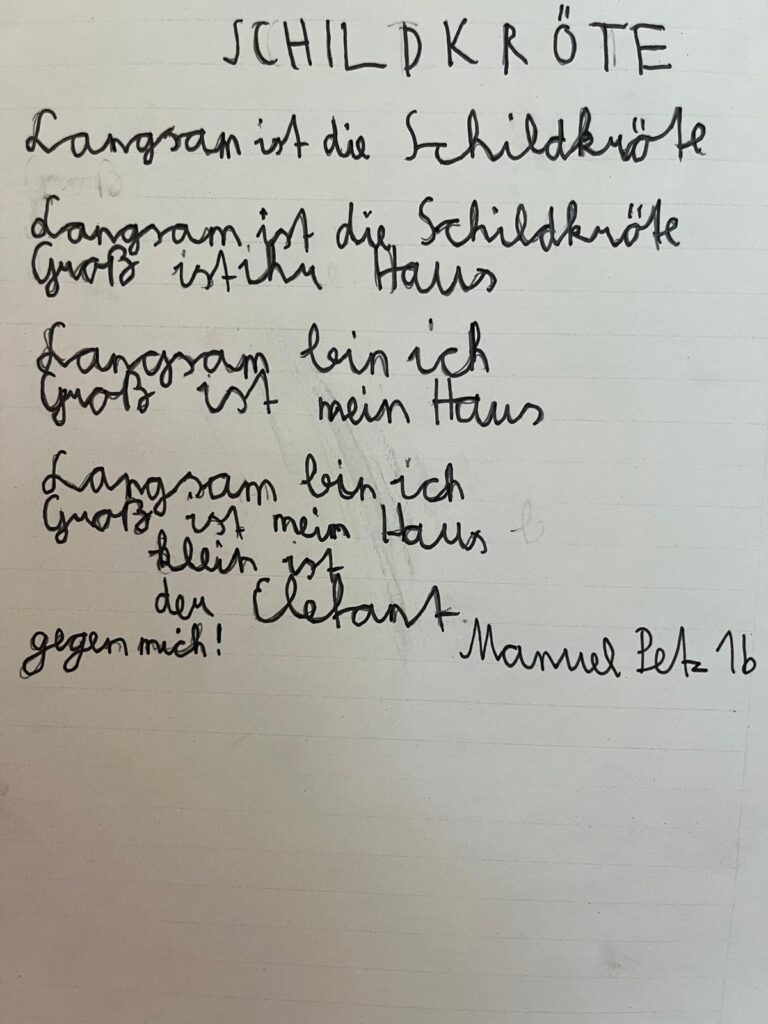 SCHILDKRÖTE
Langsam ist die Schildkröte
Langsam ist die Schildkröte
Groß ist ihr Haus
Langsam bin ich
Groß ist mein Haus
Langsam bin ich
Groß ist mein Haus
klein ist
der Elefant
gegen mich!
Manuel Petz 1b